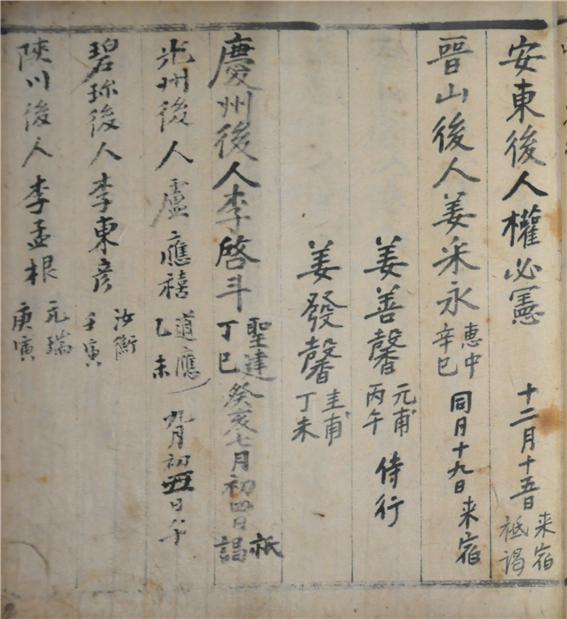 安東後人權必憲 十二月十五日 来宿 祗謁
晋山後人姜采永 惠中 辛巳 同日十九日来宿
姜善馨 元甫 丙午 侍行
姜發馨 圭甫 丁未
慶州後人李啓斗 聖建 丁巳 癸亥七月初四日祗謁
光州後人盧應禧 道應 乙未 九月初四日
碧珍後人李東彦 汝衡 壬寅
陜川後人李孟根 元瑞 庚寅